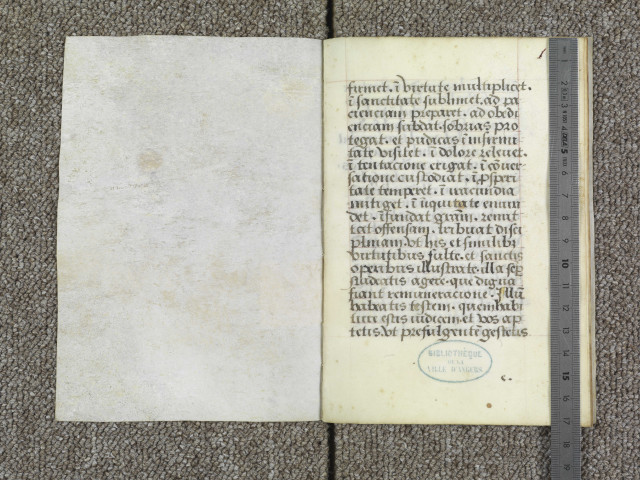 firmet. ī virtute multiplicet.
ī sanctitate sublimet. ad pa
cienciam preparet. ad obedi
enciam subdat. sobrias pro
tegat. et pudicas ī infirmi
tate visitet. ī dolore relevet.
ī temtacione erigat. ī cōver
satione custodiat. ī ꝓsperi
tate temperet. ī iracundia
mitiget. ī iniquitate emun
det. īfundat grām. remit
tat offensam. tribuat disci
plinam vt his et similibꝰ
virtutibus fulte. et sanctis
operibus illustrate. illa sēp
studeatis agere. que digna
fiant remuneracione. Illū
habeatis testem. quem habi
ture estis iudicem. et vos ap
tetis. vt prefulgentē gestetis
BIBLIOTHÈQUE
DE LA
VILLE D'ANGERS